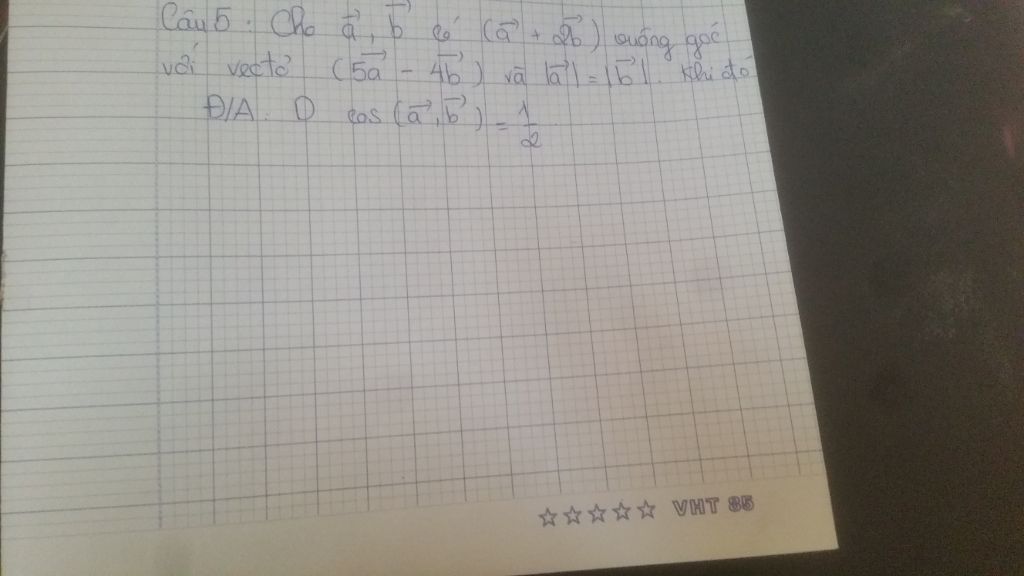 Câu 5 : Cho a⃗, b⃗ có (a⃗ + 2b⃗) vuông góc
với vectơ (5a⃗ - 4b⃗) và |a⃗| = |b⃗|. Khi đó
Đ/A: D cos (a⃗, b⃗) = 1/2
☆☆☆☆☆ VHT 85